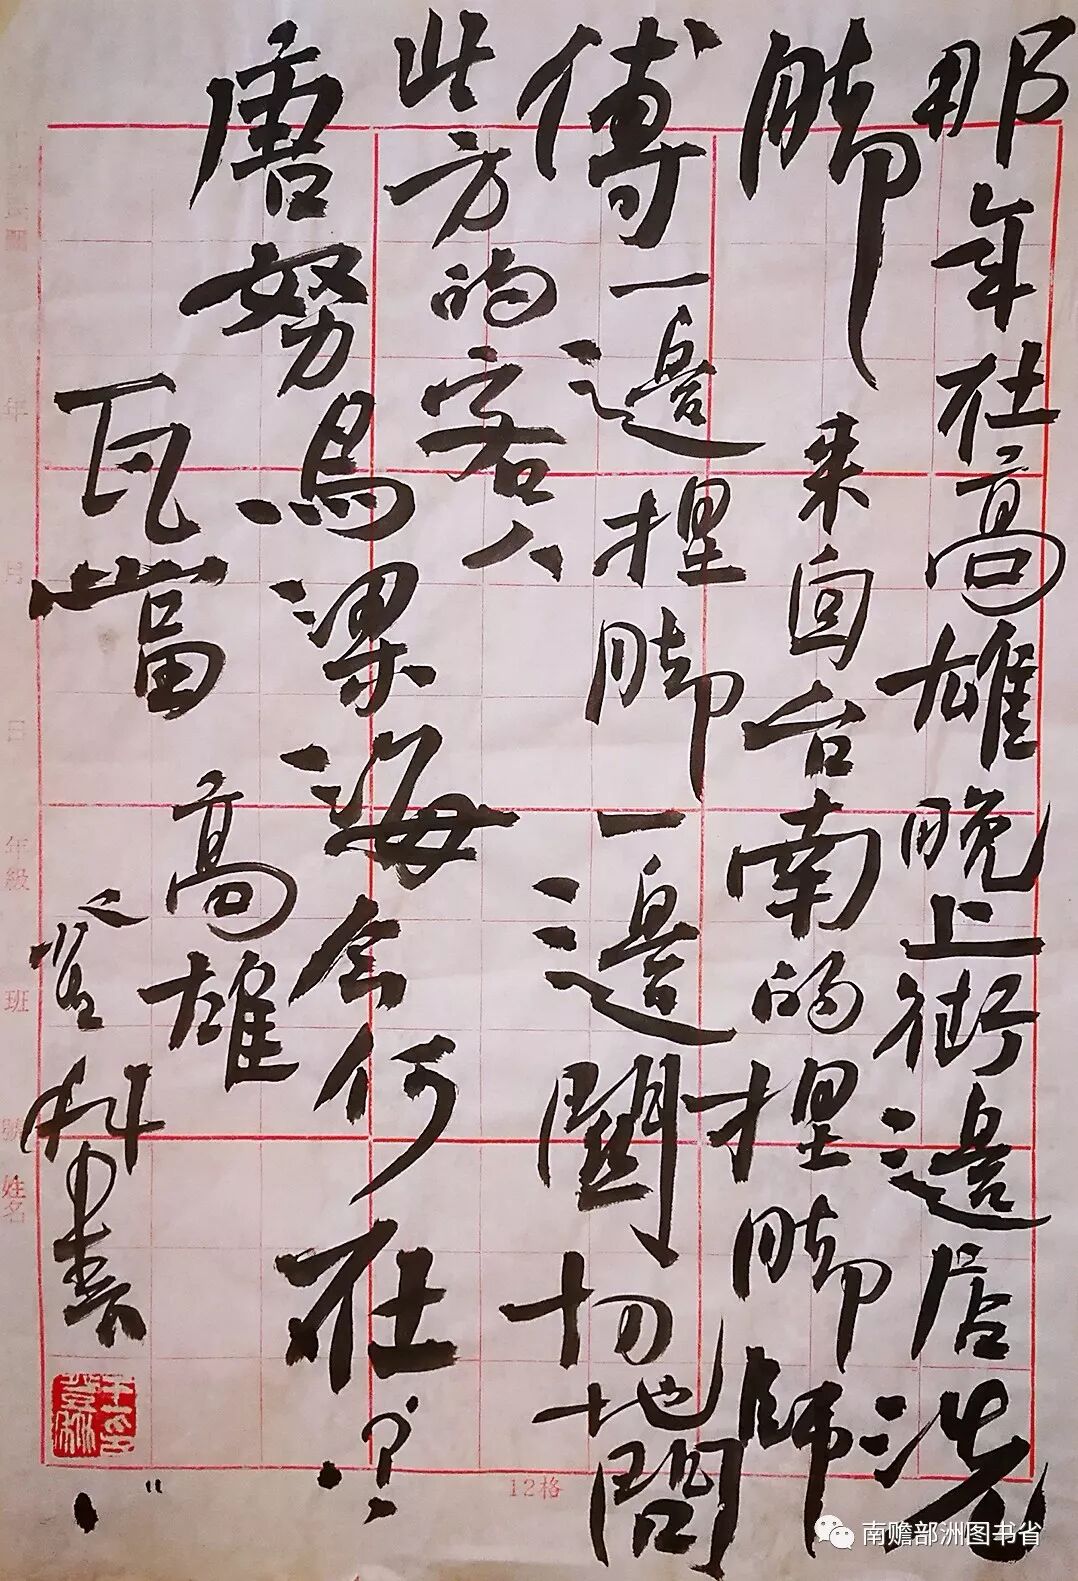 那年在高雄晚上街邊店洗
脚 来自台南的捏脚師
傅一邊捏脚一邊關切地問
此方的客人
唐努烏梁海今何在?!
瓦當 高雄
登科書
年
月
日
年級
班
號
姓名
12格
南赡部洲图书省